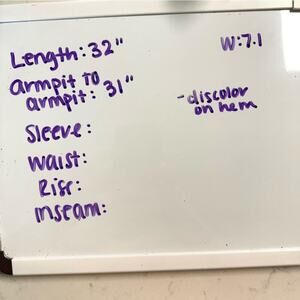 Length: 32"
W:7.1
armpit to
armpit: 31"
-discolor
on hem
Sleeve:
Waist:
Rise:
Inseam: